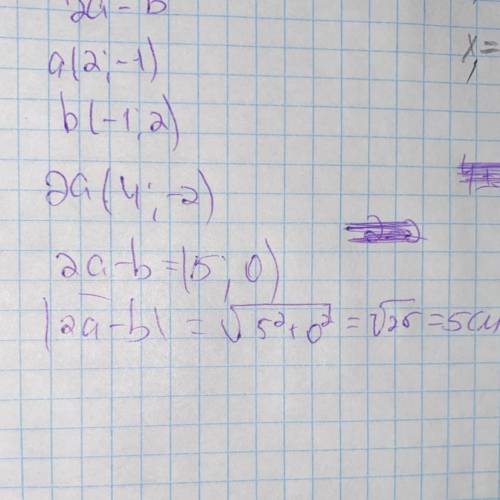 2a - b
a(2; -1)
b(-1; 2)
2a(4; -2)
2a - b = (5; 0)
|2a - b| = √5²+0² = √25 = 5см
x =